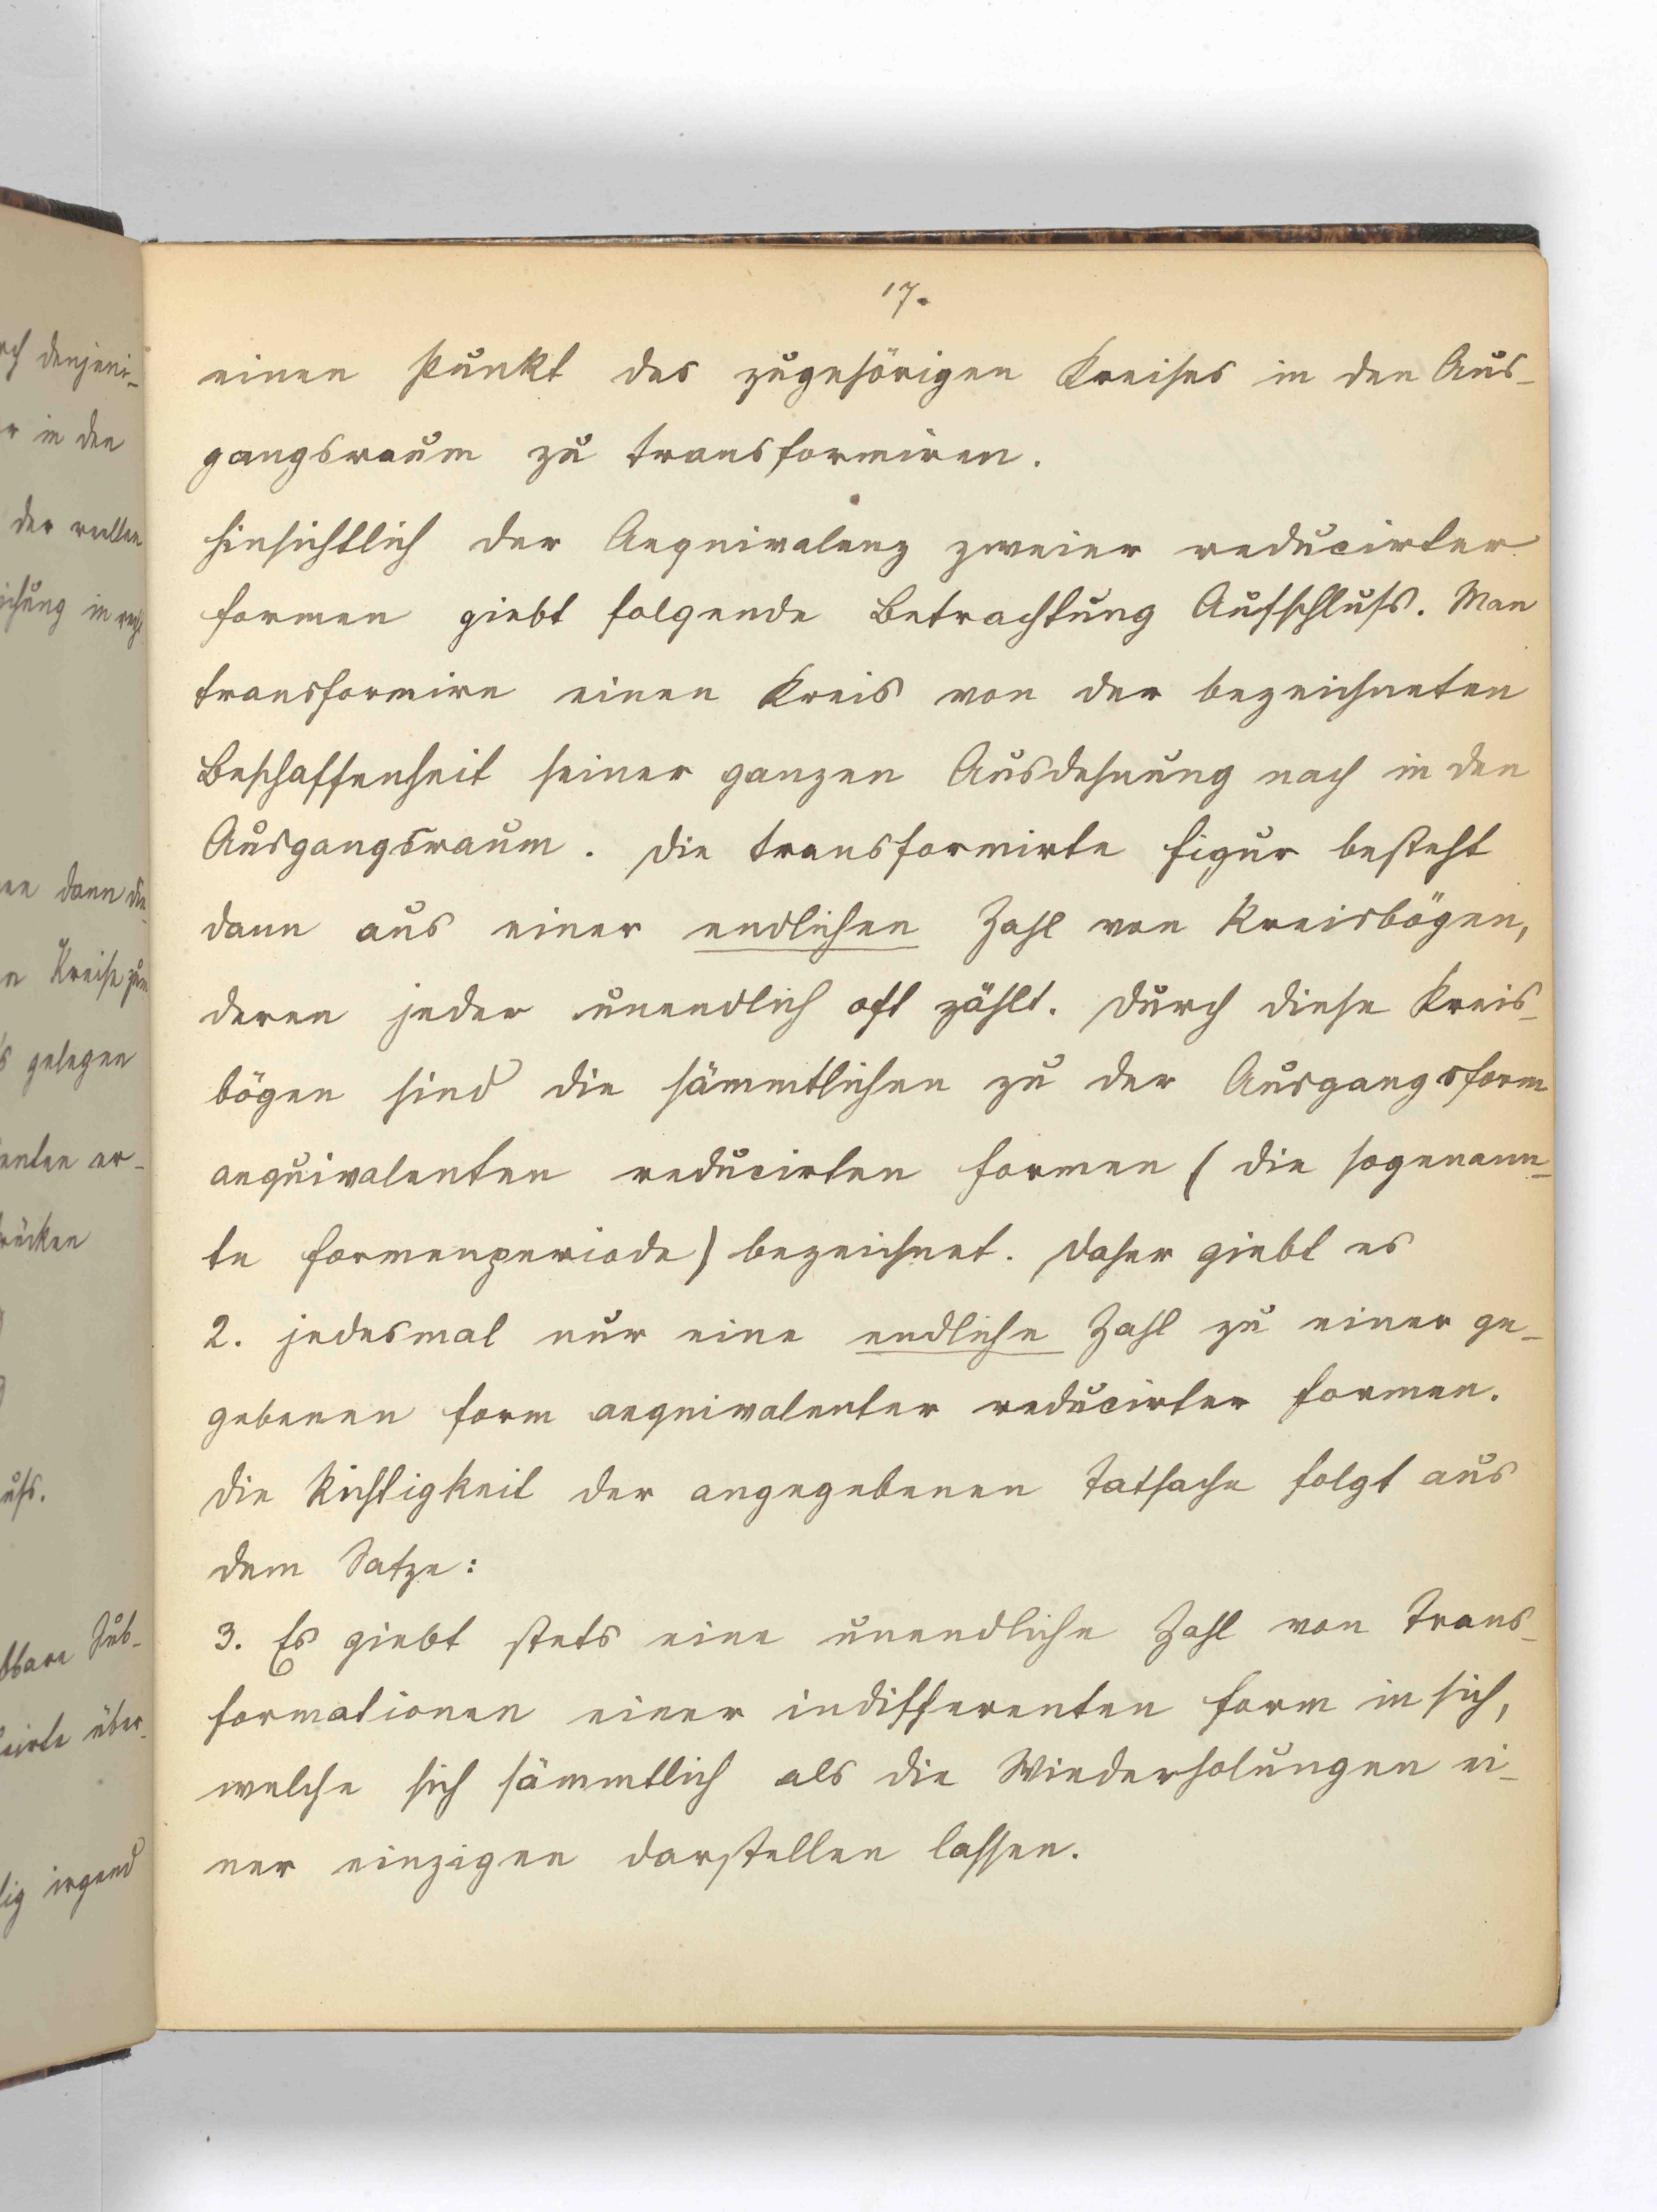 17.
einen Punkt des zugehörigen Kreises in den Aus-
gangsraum zu transformiren.
Hinsichtlich der Aequivalenz zweier reducirter
Formen giebt folgende Betrachtung Aufschluss. Man
transformire einen Kreis von der bezeichneten
Beschaffenheit seiner ganzen Ausdehnung nach in den
Ausgangsraum. Die transformirte Figur besteht
dann aus einer endlichen Zahl von Kreisbögen,
deren jeder unendlich oft zählt. Durch diese Kreis-
bögen sind die sämmtlichen zu der Ausgangsform
aequivalenten reducirten Formen (die sogenann-
te Formenperiode) bezeichnet. Daher giebt es
2. jedesmal nur eine endliche Zahl zu einer ge-
gebenen Form aequivalenter reducirter Formen.
Die Richtigkeit der angegebenen Tatsache folgt aus
dem Satze:
3. Es giebt stets eine unendliche Zahl von Trans-
formationen einer indifferenten Form in sich,
welche sich sämmtlich als die Wiederholungen ei-
ner einzigen darstellen lassen.